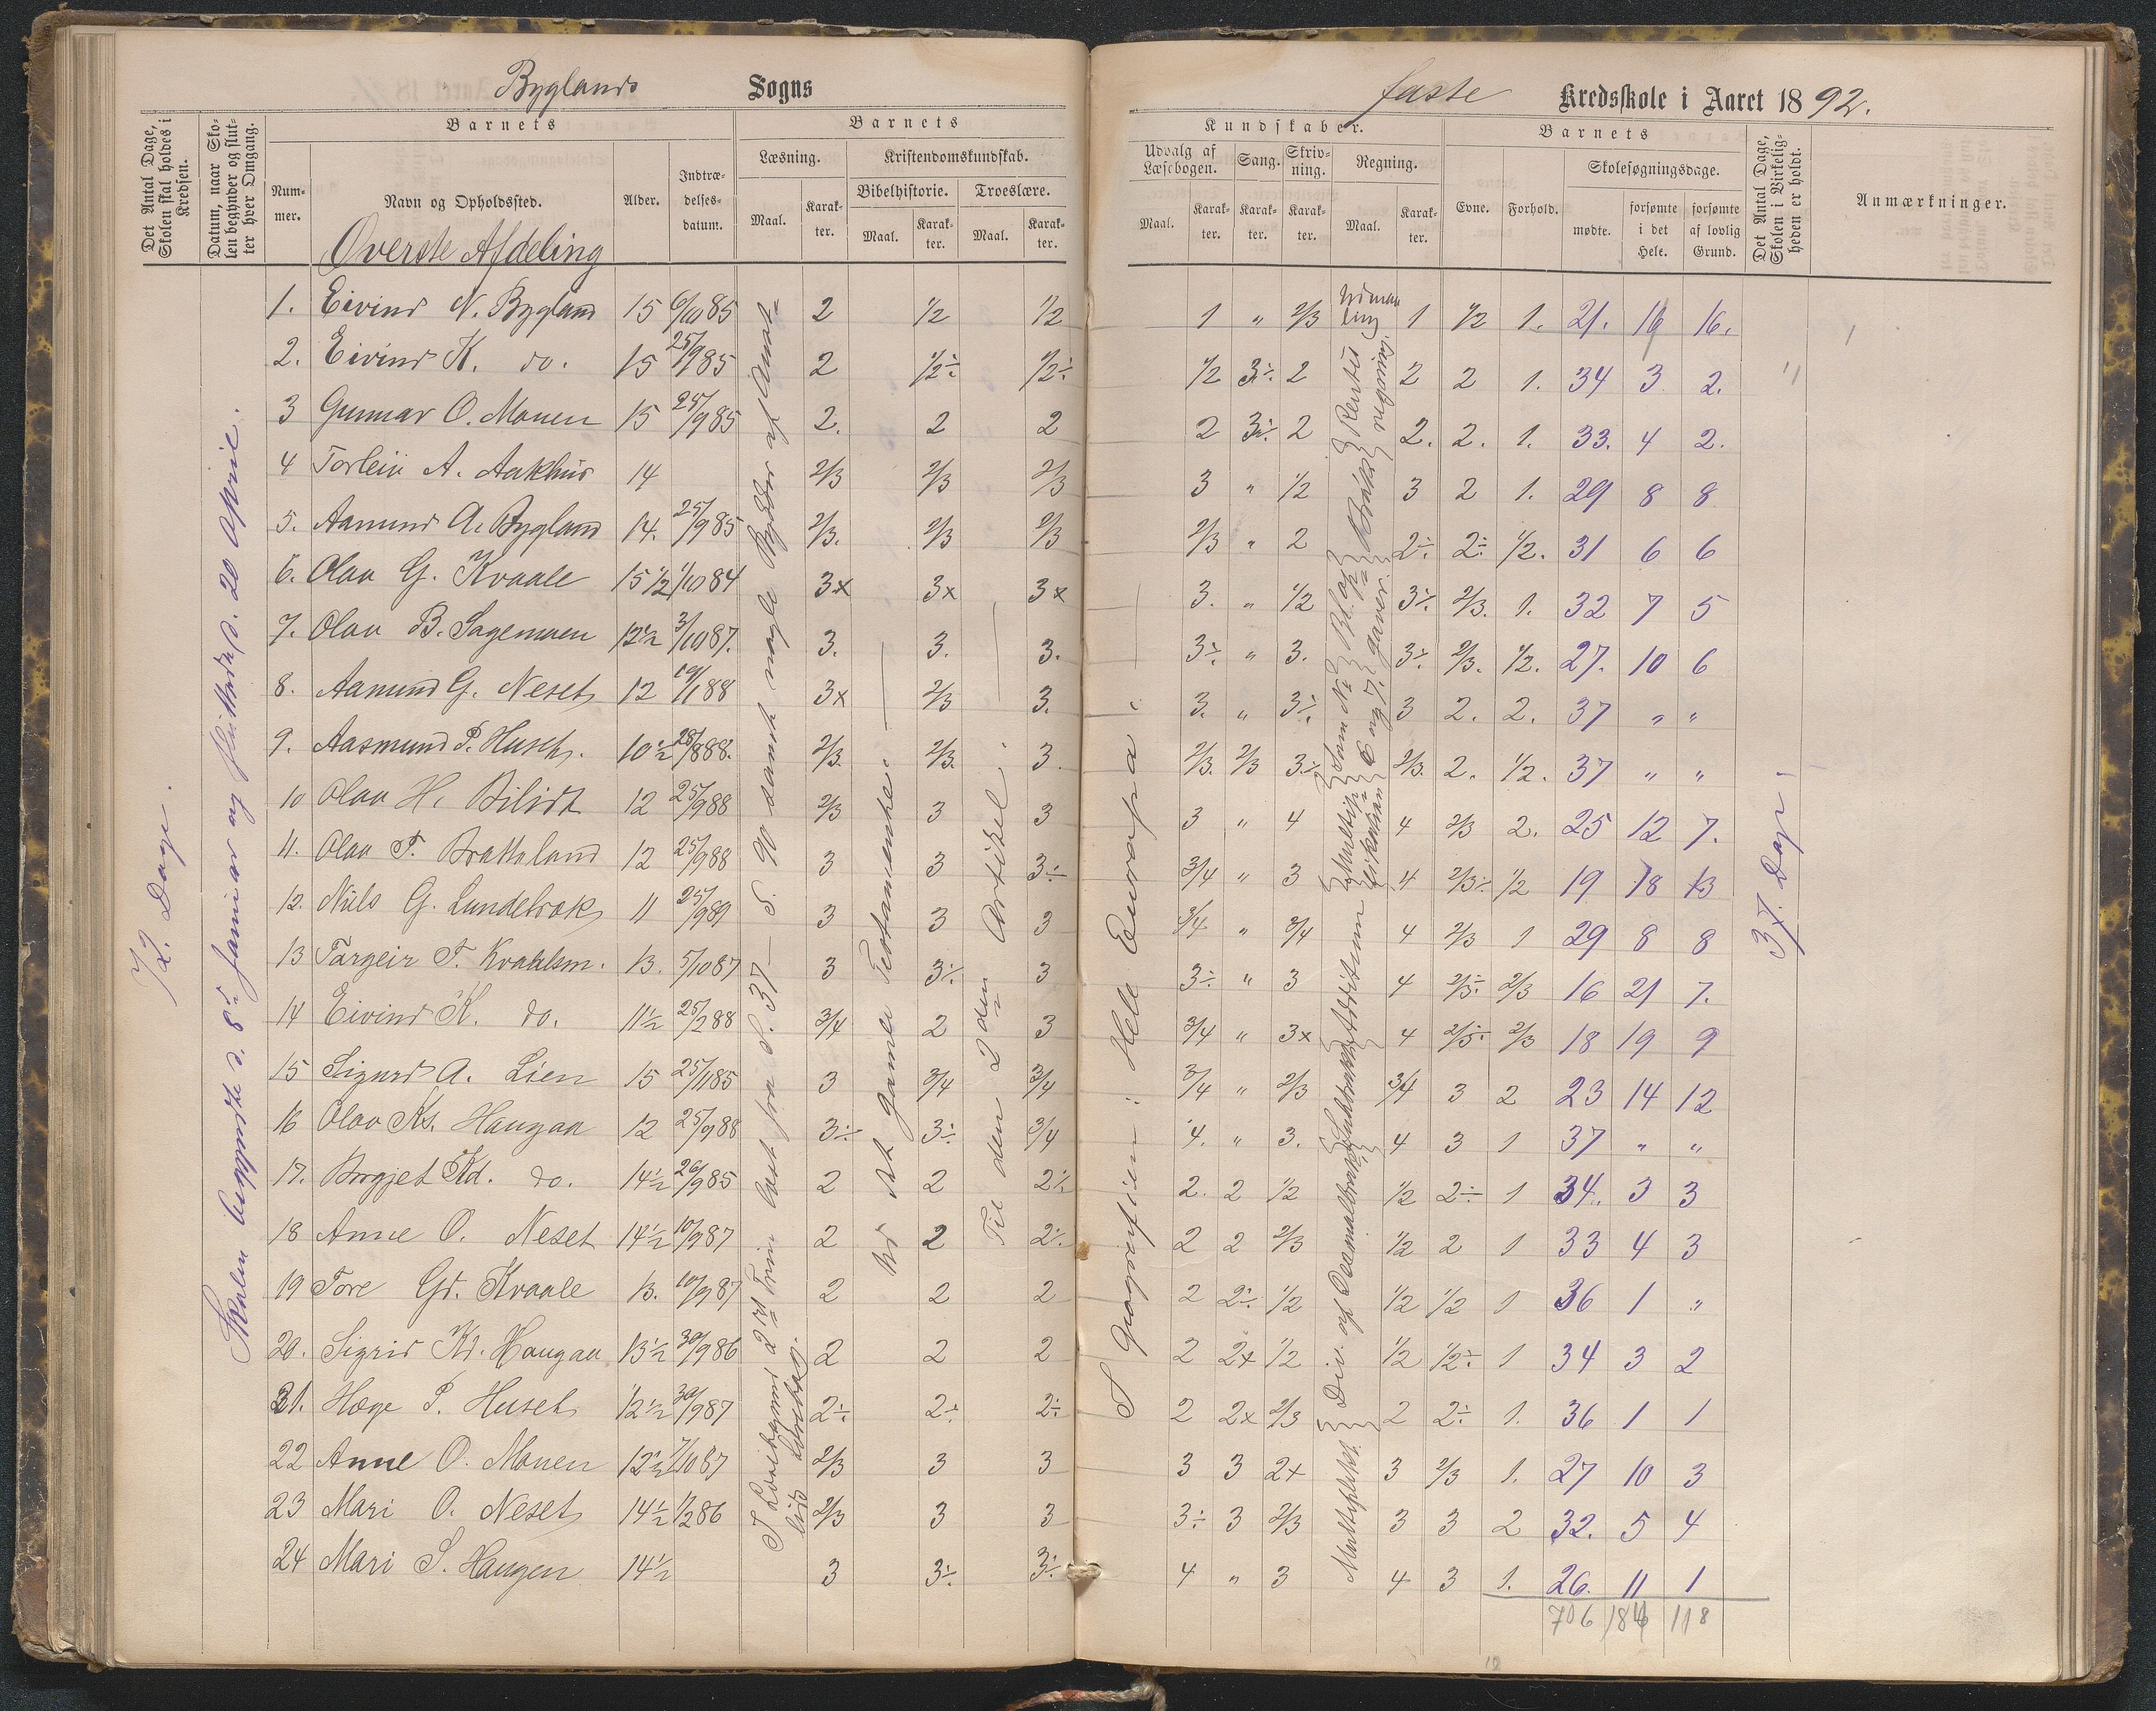 Byglands Sogns
Det Antal Dage, Skolen skal holdes i Kredsen.
Datum, naar Skolen begynder og slutter hver Omgang.
Barnets
Nummer.
Navn og Opholdssted.
Alder.
Indtrædelsesdatum.
Barnets
Læsning.
Maal.
Karakter.
Kristendomskundskab.
Bibelhistorie.
Maal.
Karakter.
Troeslære.
Maal.
Karakter.
Øverste Afdeling
1. Eivind N. Bygland 15 6/10 85 2 1/2 1/2
2. Eivind K. do. 15 25/9 85 2 1/2÷ 1/2÷
3 Gunnar O. Moen 15 25/9 85 2. 2 2
4 Torleiv A. Aakhus 14 2/3 2/3 2/3
5. Aamund A. Bygland 14. 25/9 85 2/3. 2/3 2/3
6. Olav G. Kvaale 15 1/2 1/10 84 3x 3x 3x
7. Olav B. Sagemoen 12 1/2 3/10 87. 3. 3. 3.
8. Aamund G. Neset 12 19/1 88 3x 2/3 3.
9. Aasmund P. Huset. 10 1/2 28/8 88. 2/3. 2/3. 3.
10 Olav H. 12 25/9 88 2/3 3 3
11. Olav T. Brattaland 12 25/9 88 3 3 3÷
12. Nils G. 11 25/9 89 3 3 3
13 Targeir T. 13. 5/10 87 3 3÷ 3
14 Eivind K. do. 11 1/2 25/2 88 3/4 2 3
15 Sigurd A. Lien 15 25/11 85 3 3/4 3/4
16 Olav Ks. Haugaa 12 25/9 88 3÷ 3÷ 3/4
17. Borgjet Kd. do. 14 1/2 26/9 85 2 2 2÷
18 Anne O. Neset 14 1/2 10/9 87 2 2 2÷
19 Tore Gd. Kvaale 13. 10/9 87 2 2 2
20. Sigrid Kd. Haugaa 13 1/2 30/9 86 2 2 2
21. Hæge P. Huset 12 1/2 30/9 87 2÷ 2÷ 2÷
22 Anne O. Moen 12 1/2 7/10 87 2/3 3 3
23 Mari O. Neset 14 1/2 1/2 86 2/3 3 3
24 Mari S. Haugen 14 1/2 3 3÷ 3÷
72. Dage.
Skolen begyndte d. 8de Januar og sluttede d. 20 April.
I 2det Trin læst fra S. 37 – S. 90 samt nogle Stykker af
Det gamle Testamente.
Til den 2den Artikel.
faste Kredsskole i Aaret 1892.
Kundskaber.
Udvalg af Læsebogen.
Maal.
Karakter.
Sang.
Karakter.
Skrivning.
Karakter.
Regning.
Maal.
Karakter.
Barnets
Evne.
Forhold.
Skolesøgningsdage.
mødte.
forsømte i det Hele.
forsømte af lovlig Grund.
Det Antal Dage, Skolen i Virkeligheden er holdt.
Anmærkninger.
1 " 2/3 1 1/2 1. 21. 16 16.
1/2 3÷ 2 2 2 1. 34 3 2.
2 3÷ 2 2. 2. 1. 33. 4 2.
3 " 1/2 3 2 1. 29 8 8
2/3 " 2 2÷ 2÷ 1/2. 31 6 6
3. " 1/2 3÷ 2/3. 1. 32 7 5
3÷ " 3. 3÷ 2/3. 1/2. 27. 10 6
3. " 3÷ 3 2. 2. 37 " "
2/3. 2/3 3÷ 2/3. 2. 1/2. 37 " "
3 " 4 4 2/3 2. 25 12 7.
3/4 " 3 4 2/3÷ 1/2 19 18 13
3/4 " 3/4 4 2/3 1 29 8 8
3÷ " 3 4 2/3÷ 2/3 16 21 7.
3/4 " 3x 4 2/3÷ 2/3 18 19 9
3/4 " 2/3 3/4 3 2 23 14 12
4. " 3. 4 3 1 37 " "
2. 2 1/2 1/2 2÷ 1 34. 3 3
2 2 2/3 1/2 2 1 33 4 3
2 2÷ 1/2 1/2 1/2 1 36 1 "
2 2x 1/2 1/2 1/2÷ 1 34 3 2
2 2x 2/3 2 2÷ 1. 36 1 1
3 3 2x 3 2/3 1. 27 10 3
3÷ 3 2/3 3 3 2 32. 5 4
4 " 3 4 3 1. 26. 11 1
706 184 118
I Geografien: Hele Europa.
Rentesregning.
Brøk
Som No 6 og 7.
Addition
Subtraktion
Div. af Decimalbrøk
Multiplikat.
37. Dage.